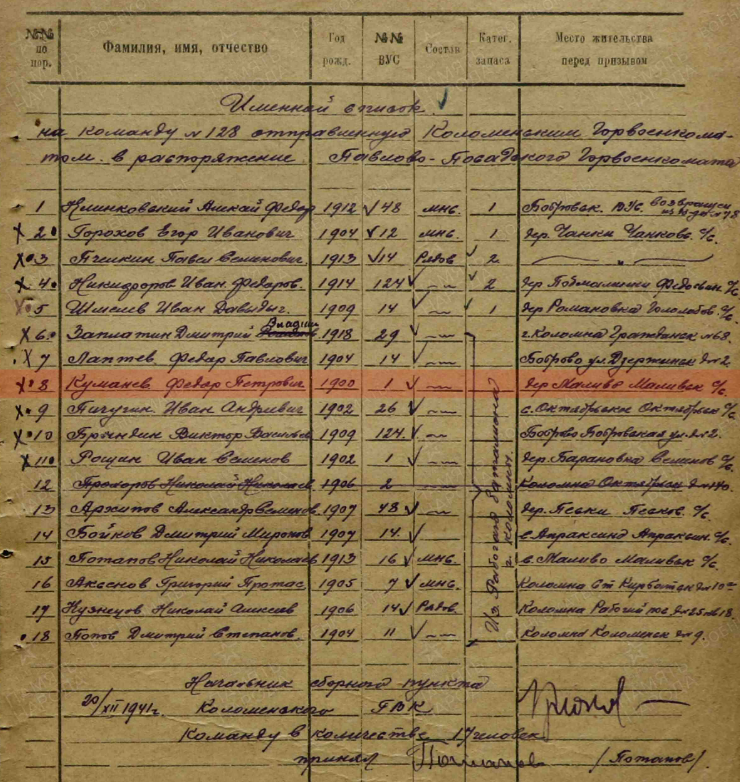 №№ по пор. Фамилия, имя, отчество Год рожд. №№ ВУС Состав Катег. запаса Место жительства перед призывом
Именной список
на команду №128 отправленную Коломенским Горвоенкома-
том в распоряжение Павлово-Посадского Горвоенкомата
1 Климковский Алексей Федор 1912 48 мнс. 1 Бобровск. возвращен
2 Горохов Егор Иванович 1904 12 мнс. 1 дер. Чанки Чанков. с/с.
3 Пчелкин Павел Семенович 1913 14 Рядов 2 — „ —
4 Никифоров Иван Федоров. 1914 124 — „ — 2 дер. с/с.
5 Шмелев Иван Давыдыч. 1909 14 — „ — 1 дер. Романовка с/с.
6 Заплатин Дмитрий Владим 1918 29 — „ — г. Коломна Гражданск №68.
7 Лаптев Федор Павлович 1904 14 — „ — Боброво ул. Дзержинск д-2
8 Куманев Федор Петрович 1900 1 — „ — дер Маливо Маливск с/с.
9 Пичугин Иван Андривич 1902 26 — „ — с. Октябрьск с/с
10 Виктор 1909 124 — „ — Боброво Бобровская ул. д-2.
11 Рощин Иван Семенов 1902 1 — „ — дер. Барановка с/с.
12 Николай 1906 2 Коломна Октябрьск
13 Архипов Александр 1907 48 — „ — дер. Пески Песков. с/с.
14 Бойков Дмитрий Миронов 1907 14 — „ — с. Апраксино Апраксин. с/с.
15 Потапов Николай Николаев 1913 16 мнс. с. Маливо Маливск с/с
16 Аксенов Григорий Протас. 1905 7 мнс. Коломна Ст
17 Кузнецов Николай Алексеев 1906 14 Рядов Коломна Рабочий пос. д-25
18 Попов Дмитрий Степанов. 1904 11 — „ — Коломна д-9.
Из Рабочего батальона г. Коломны.
Начальник сборного пункта
20/XII 1941г. Коломенского ГВК
Команду в количестве 17 человек
принял (Потапов).